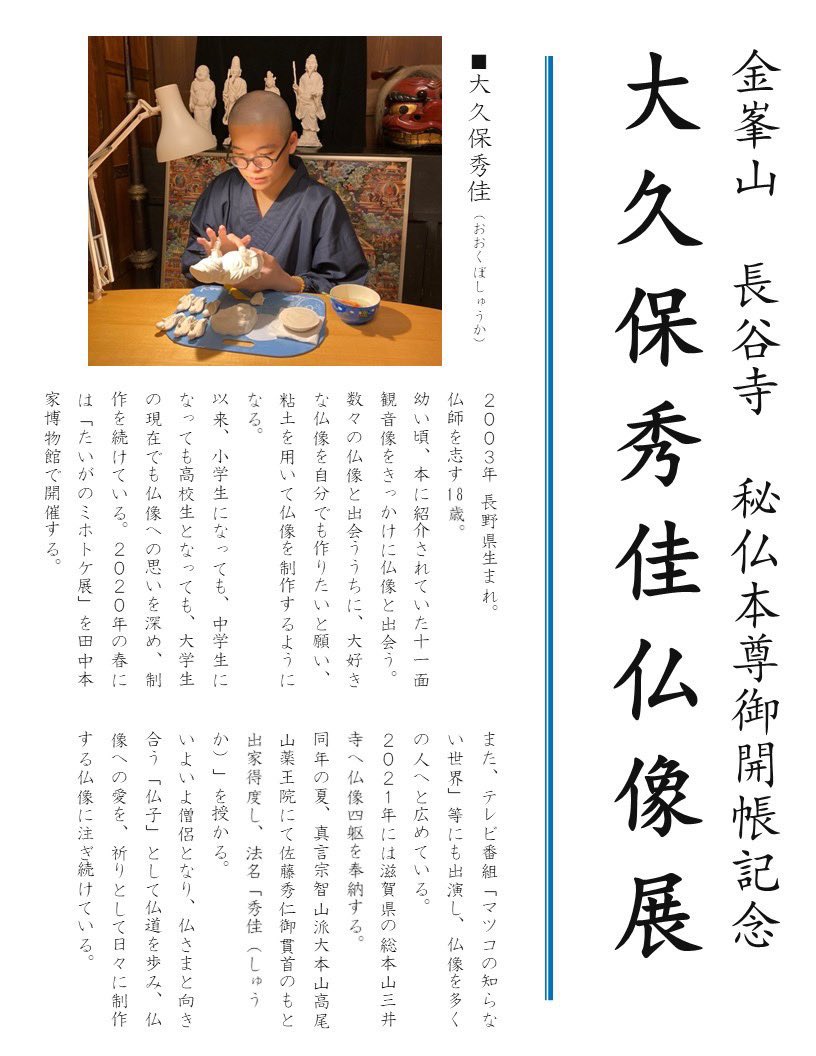 金峯山 長谷寺 秘仏本尊御開帳記念
大久保秀佳仏像展
■大久保秀佳（おおくぼしゅうか）
２００３年 長野県生まれ。
仏師を志す18歳。
幼い頃、本に紹介されていた十一面
観音像をきっかけに仏像と出会う。
数々の仏像と出会ううちに、大好き
な仏像を自分でも作りたいと願い、
粘土を用いて仏像を制作するように
なる。
以来、小学生になっても、中学生に
なっても高校生となっても、大学生
の現在でも仏像への思いを深め、制
作を続けている。２０２０年の春に
は「たいがのミホトケ展」を田中本
家博物館で開催する。
また、テレビ番組「マツコの知らな
い世界」等にも出演し、仏像を多く
の人へと広めている。
２０２１年には滋賀県の総本山三井
寺へ仏像四躯を奉納する。
同年の夏、真言宗智山派大本山高尾
山薬王院にて佐藤秀仁御貫首のもと
出家得度し、法名「秀佳（しゅう
か）」を授かる。
いよいよ僧侶となり、仏さまと向き
合う「仏子」として仏道を歩み、仏
像への愛を、祈りとして日々に制作
する仏像に注ぎ続けている。